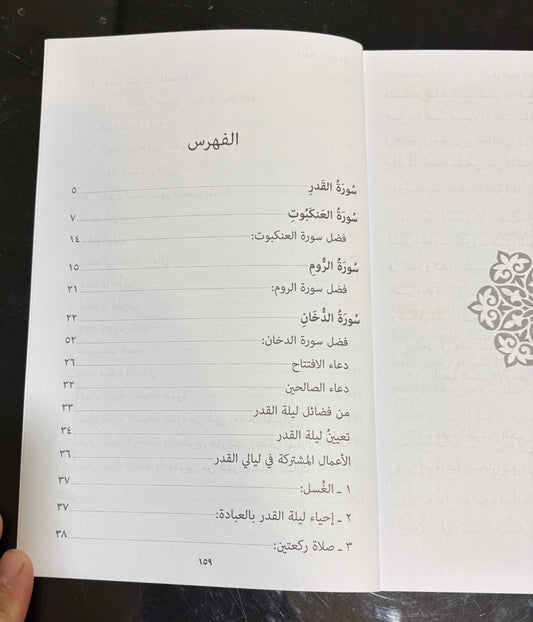 الفهرس
سُورَةُ القَدرِ ٥
سُورَةُ العَنكَبُوتِ ٧
فضل سورة العنكبوت: ١٤
سُورَةُ الرُّومِ ١٥
فضل سورة الروم: ٢١
سُورَةُ الدُّخَانِ ٢٢
فضل سورة الدخان: ٥٢
دعاء الافتتاح ٢٦
دعاء الصالحين ٣٢
من فضائل ليلة القدر ٣٣
تعيينُ ليلة القدر ٣٤
الأعمال المشتركة في ليالي القدر ٣٦
١ ـ الغُسل: ٣٧
٢ ـ إحياء ليلة القدر بالعبادة: ٣٧
٣ ـ صلاة ركعتين: ٣٨
١٥٩